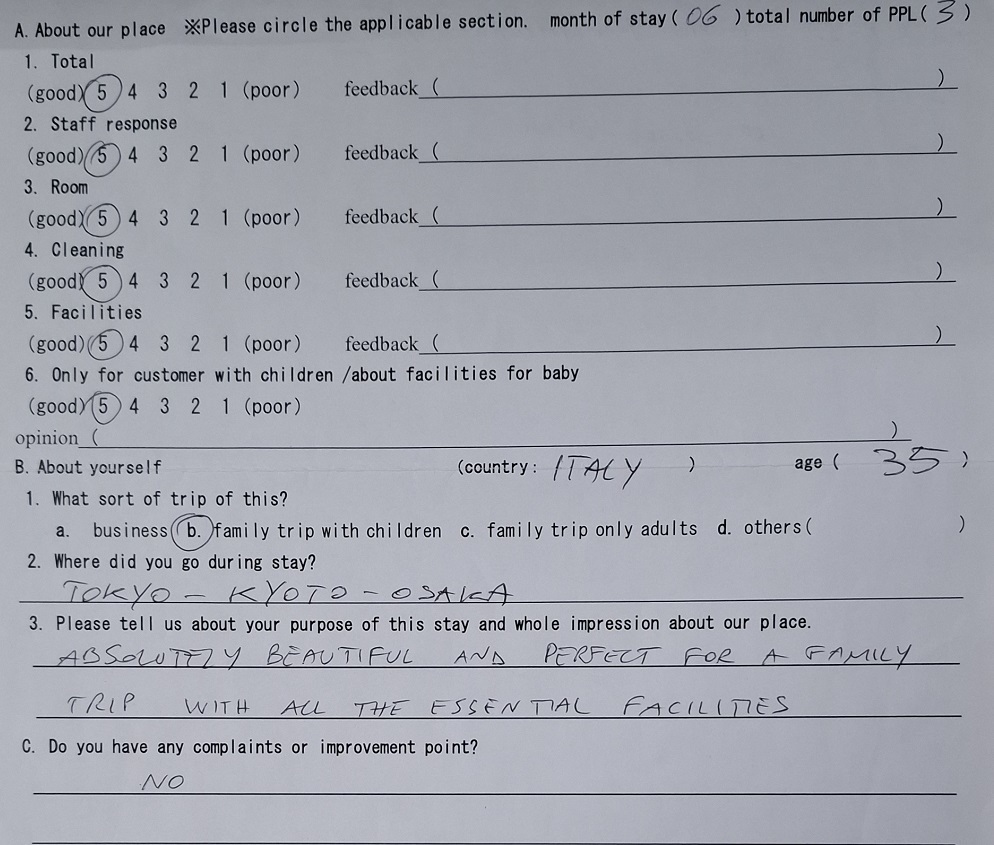 A. About our place ※Please circle the applicable section. month of stay( 06 ) total number of PPL( 3 )
1. Total
(good) 5 4 3 2 1 (poor) feedback ( )
2. Staff response
(good) 5 4 3 2 1 (poor) feedback ( )
3. Room
(good) 5 4 3 2 1 (poor) feedback ( )
4. Cleaning
(good) 5 4 3 2 1 (poor) feedback ( )
5. Facilities
(good) 5 4 3 2 1 (poor) feedback ( )
6. Only for customer with children /about facilities for baby
(good) 5 4 3 2 1 (poor)
opinion ( )
B. About yourself (country: ITALY ) age ( 35 )
1. What sort of trip of this?
a. business b. family trip with children c. family trip only adults d. others( )
2. Where did you go during stay?
TOKYO - KYOTO - OSAKA
3. Please tell us about your purpose of this stay and whole impression about our place.
ABSOLUTELY BEAUTIFUL AND PERFECT FOR A FAMILY
TRIP WITH ALL THE ESSENTIAL FACILITIES
C. Do you have any complaints or improvement point?
NO